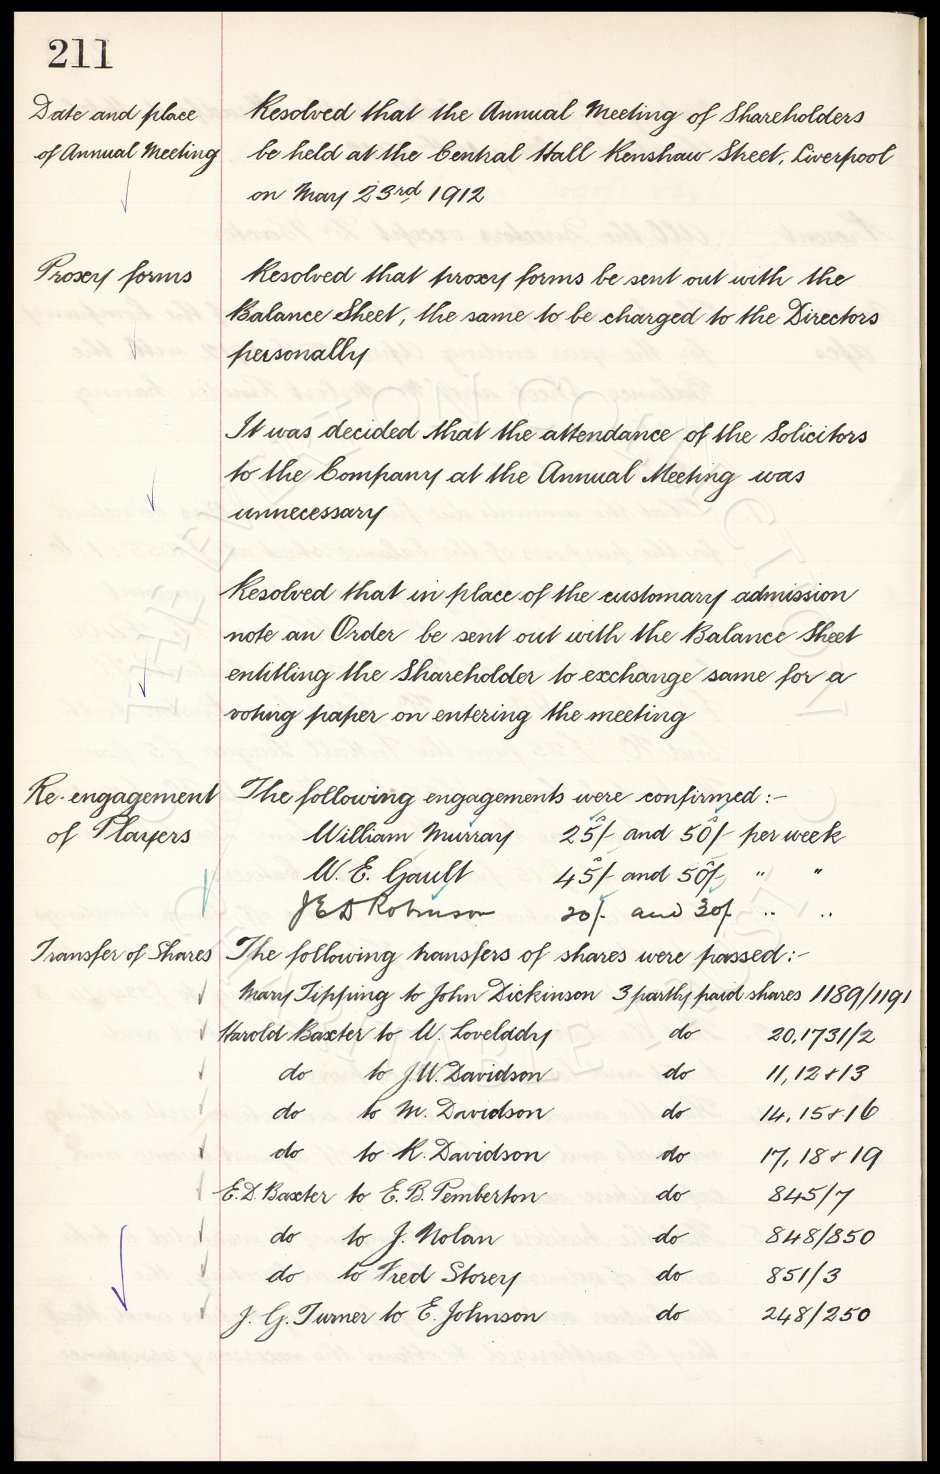 211
Date and place Resolved that the Annual Meeting of Shareholders
of Annual Meeting be held at the Central Hall Renshaw Street, Liverpool
on May 23rd 1912
Proxy forms Resolved that proxy forms be sent out with the
Balance Sheet, the same to be charged to the Directors
personally
It was decided that the attendance of the Solicitors
to the Company at the Annual Meeting was
unnecessary
Resolved that in place of the customary admission
note an Order be sent out with the Balance Sheet
entitling the Shareholder to exchange same for a
voting paper on entering the meeting
Re-engagement The following engagements were confirmed:-
of Players William Murray 25/- and 50/- per week
W. E. Gault 45/- and 50/- " "
J E D Robinson 20/- and 30/- " "
Transfer of Shares The following transfers of shares were passed:-
Mary Tipping to John Dickinson 3 partly paid shares 1189/1191
Harold Baxter to W. Lovelady do 20,1731/2
do to J. W. Davidson do 11, 12 & 13
do to M. Davidson do 14, 15 & 16
do to R. Davidson do 17, 18 & 19
E. D. Baxter to E. B. Pemberton do 845/7
do to J. Nolan do 848/850
do to Fred Storey do 851/3
J. G. Turner to E. Johnson do 248/250